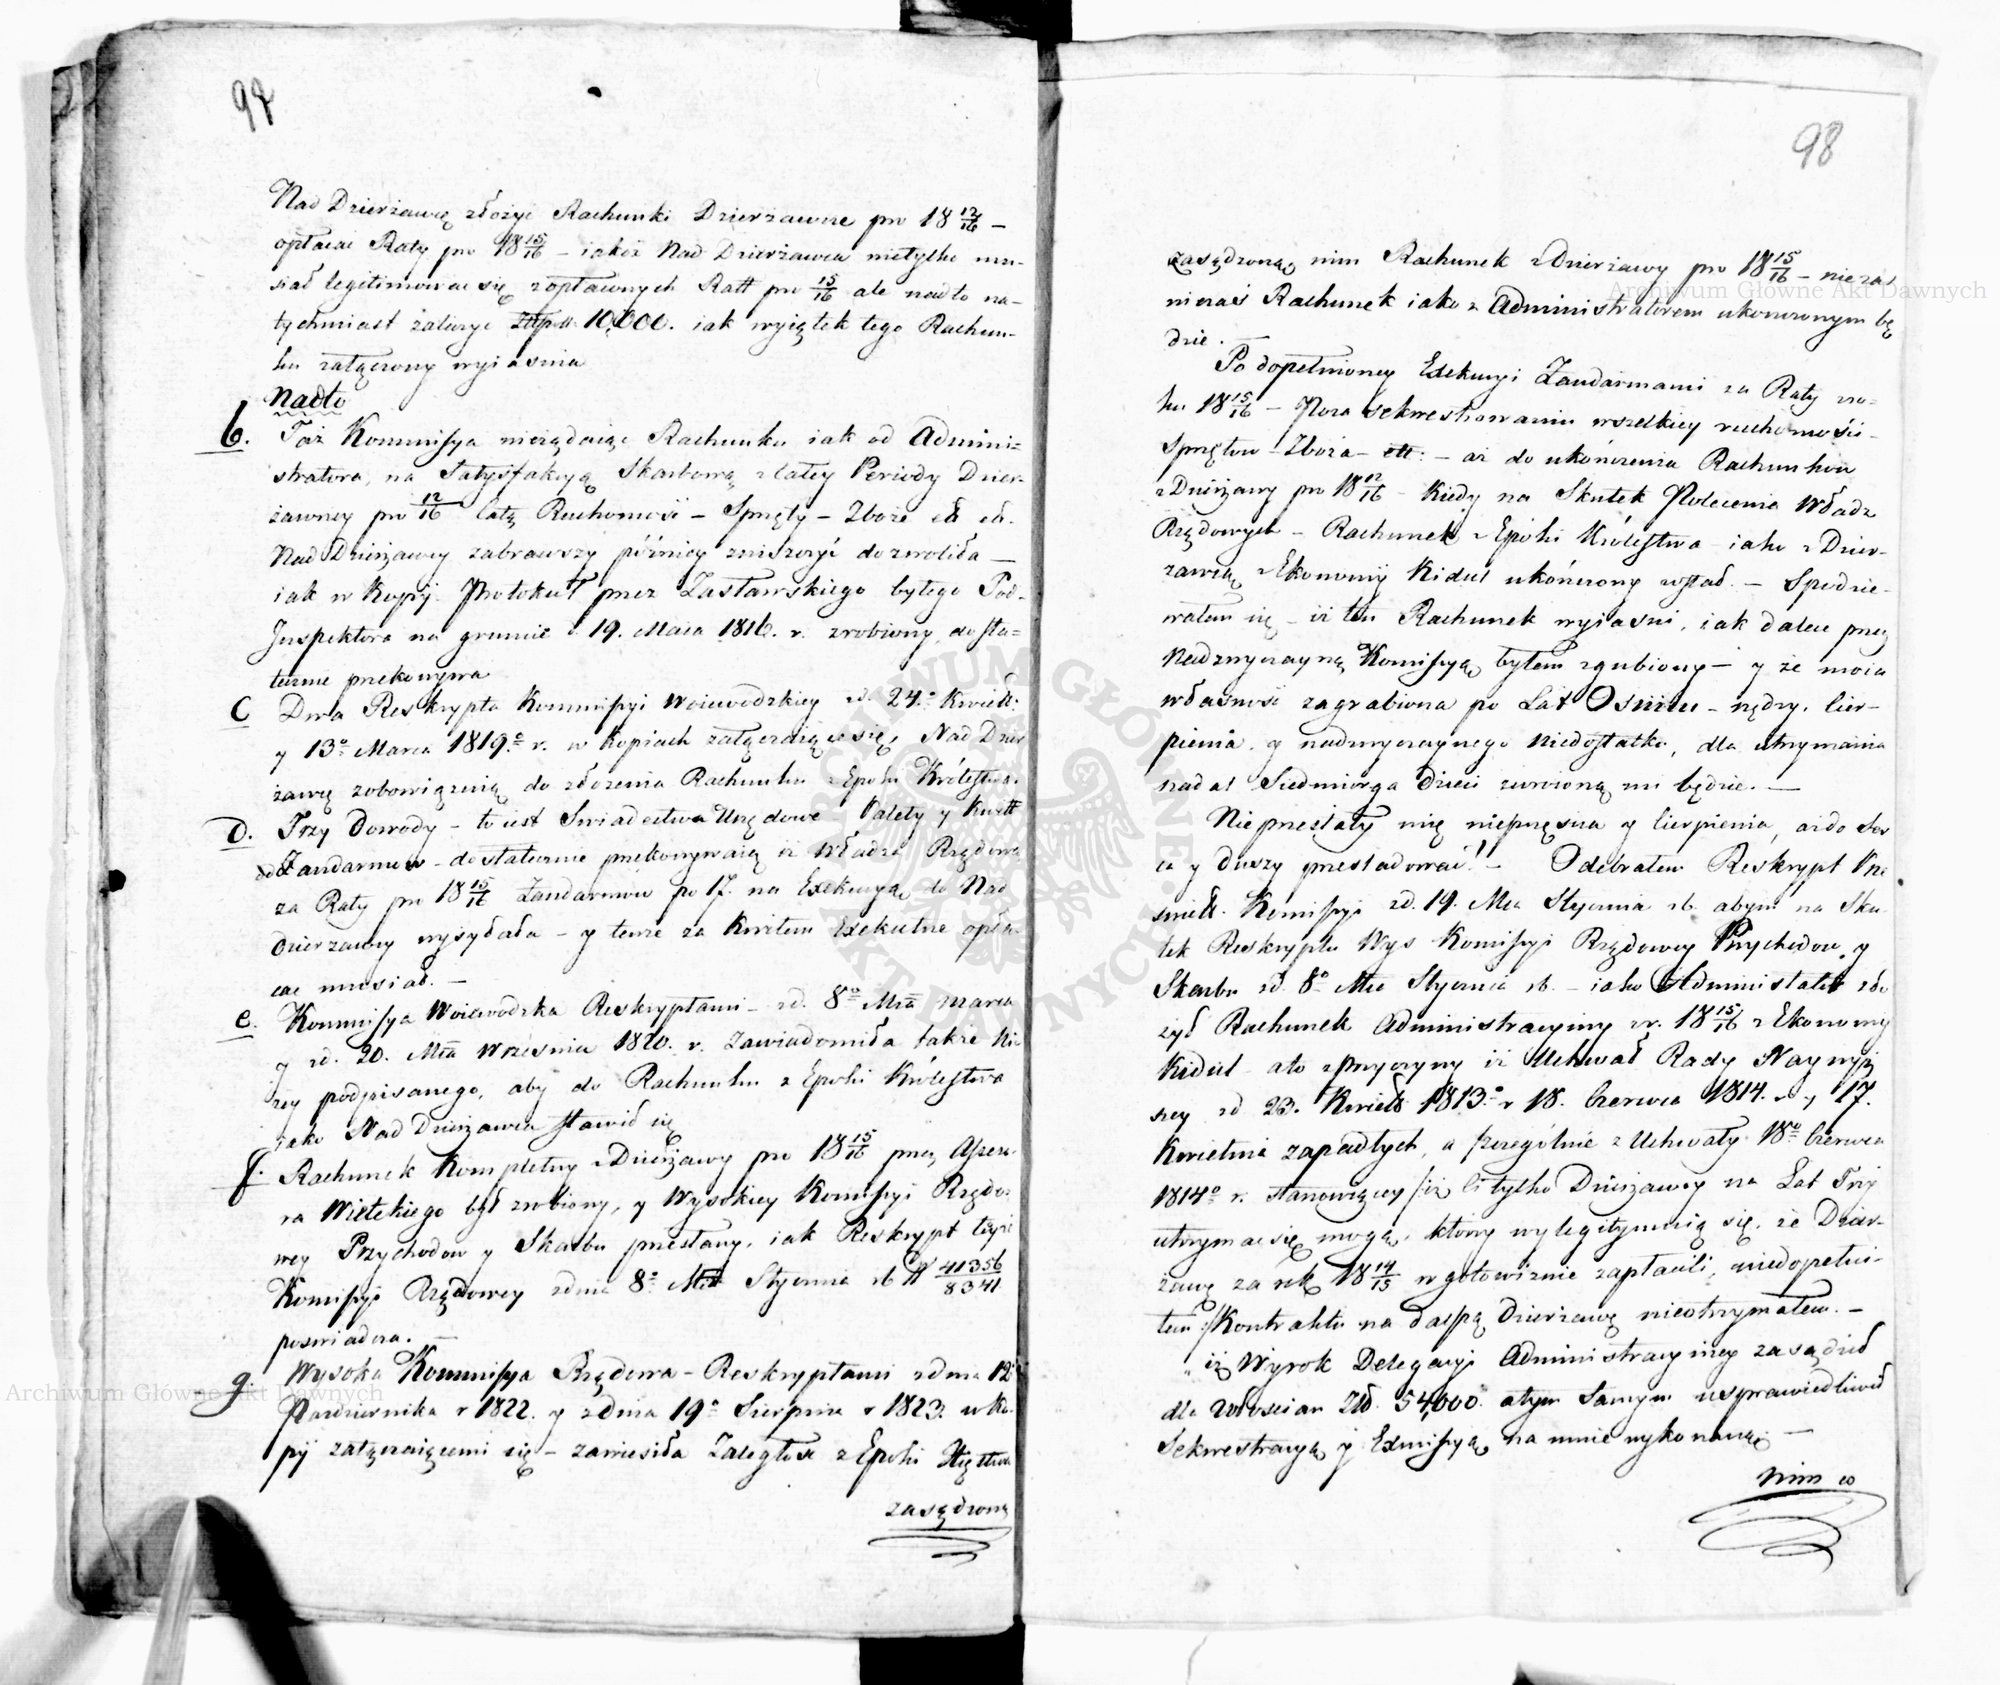 98
Nad Dzierżawcę złożyć Rachunki Dzierżawne pro 18 12/16 —
opłacać Raty pro 18 15/16 — iakoż Nad Dzierżawca nietylko mu-
siał legitimować się z opłaconych Ratt pro 15/16 ale nadto na-
tychmiast zaliczyć Złłp. 10,000. iak wyiątek tego Rachun-
ku załączony wyiaśnia
Nadto
b. Taż Kommissya nieżądaiąc Rachunku iak od Admini-
stratora, na Satysfakcyą Skarbową z całey Periody Dzier-
żawney pro 12/16 całą Ruchomość — Sprzęty — Zboże ett ett.
Nad Dzierżawcy zabrawszy późniey zniszczyć dozwoliła —
iak w Kopij Protokuł przez Zasławskiego byłego Pod-
Inspektora na gruncie d. 19. Maia 1816. r. zrobiony, dosta-
tecznie przekonywa
C Dwa Reskrypta Kommissyi Woiewodzkiey z d. 24.o Kwiet.
y 13o Marca 1819.o r. w Kopiach załączaiące się, Nad Dzier
żawcę zobowiązuią do złożenia Rachunku z Epoki Królestwa.
D. Trzy Dowody — to iest Swiadectwa Urzędowe — Palety y Kwitt
od Zandarmów — dostatecznie przekonywaią iż Władza Rządowa
za Raty pro 18 15/16 Zandarmów po 17. na Exekucyą do Nad
Dzierżawcy wysyłała — y temże za Kwitem Exekutne opła
cać musiał. —
e. Kommissya Woiewodzka Reskryptami — z d. 8o Mca Marca
y z d. 20. Mca Września 1820. r. zawiadomiła także Ni
żey podpisanego, aby do Rachunku z Epoki Królestwa
iako Nad Dzierżawca stawił się
f. Rachunek Kompletny z Dzierżawy pro 18 15/16 przez Assess.
ra Wileckiego był zrobiony, y Wysokiey Komissyi Rządo-
wey Przychodów y Skarbu przesłany, iak Reskrypt teyże
Komissyi Rządowey z dnia 8o Mca Stycznia rb N 41356/8341
poswiadcza. —
g. Wysoka Kommissya Rządowa — Reskryptami z dnia 12
Pazdziernika r 1822. y z dnia 19o Sierpnia r 1823. w Ko-
pij załączaiącemi się — zawiesiła Zaległość z Epoki Xięstwa
zasądzoną
98
zasądzoną nim Rachunek z Dzierżawy pro 18 15/16 — nie zas
nieraś Rachunek iako z Administratorem ukończonym bę
dzie.
Po dopełnioney Exekucyi Zandarmami za Raty ro-
ku 18 15/16 — Po za sekwestrowaniu wszelkiey ruchomości —
Sprzętów — Zboża — ett: — aż do ukończenia Rachunków
z Dzierżawy pro 18 12/16 — Kiedy na Skutek Polecenia Władz
Rządowych — Rachunek z Epoki Królestwa — iako z Dzier-
żawcą z Ekonomij Kidul ukończony został. — Spodzie-
wałem się — iż ten Rachunek wyiaśni, iak dalece przez
Nadzwyczayną Komissyą byłem zgubiony — y że moia
własność zagrabiona po Lat Osmiu — nędzy, cier-
pienia, y nadzwyczaynego Niedostatku, dla utrzymania
nadal Siedmiorga Dzieci zwróconą mi będzie. —
Nieprzestały mię nieszczęścia y cierpienia, aż do Ser
ca y duszy prześladować!! — Odebrałem Reskrypt Prze
świett. Komissyi z d. 19. Mca Stycznia rb. abym na Sku
tek Reskryptu Wys Komissyi Rządowey Przychodow y
Skarbu z d. 8o Mca Stycznia rb. — iako Administator zło
żył Rachunek Administracyiny z r. 18 15/16 z Ekonomij
Kidul — ato z przyczyny iż Uchwał Rady Naywyż
szey z d 23. Kwiet 1813.o r 18. Czerwca 1814. r y 17.
Kwietnia zapadłych, a szczególnie z Uchwały 18o Czerwca
1814o r. stanowiącey /: iż Ci tylko Dzierżawcy na Lat Trzy
utrzymać się mogą, którzy wylegitymuią się, że Dzier-
żawę za rok 18 14/15 w gotowiznie zapłacili, niedopełni-
łem :/ Kontraktu na dalszą Dzierżawę nieotrzymałem. —
„ iż Wyrok Delegacyi Administracyiney zasądził
dla Włościan Złł. 54,000 atym samym usprawiedliwił
Sekwestracyą y Exmissyą, na mnie wykonaną —
nim co